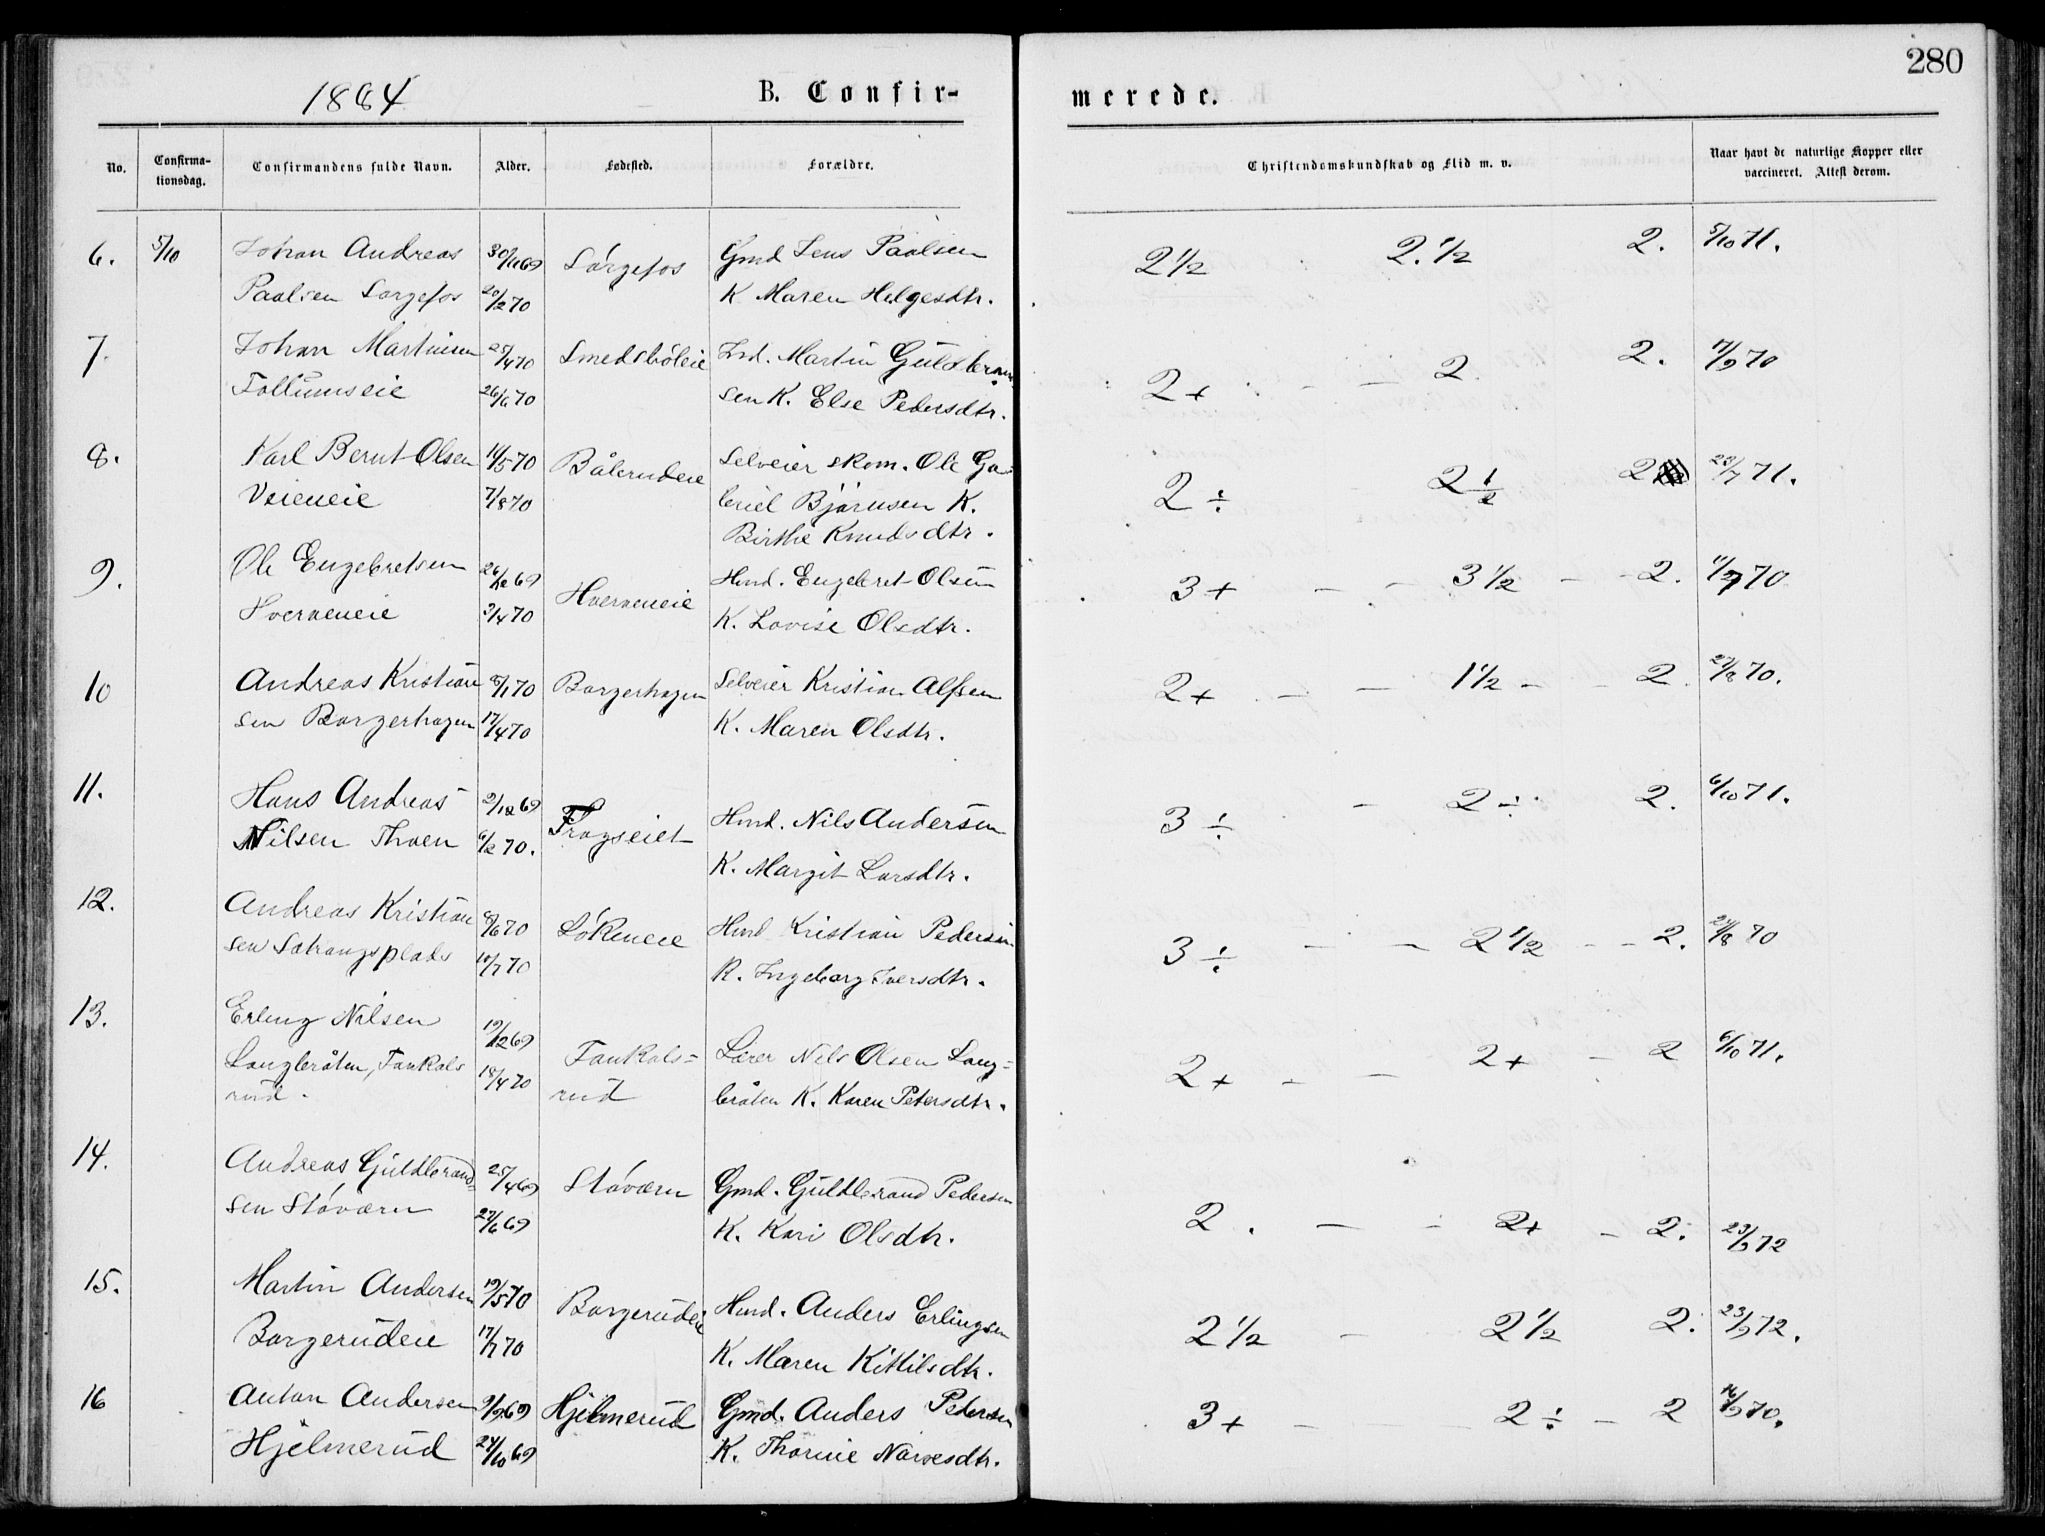 280
1884
B. Confir-
merede.
No.
Confirma-
tionsdag.
Confirmandens fulde Navn.
Alder.
Fødested.
Forældre.
Christendomskundskab og Flid m. v.
Naar havt de naturlige Kopper eller
vaccineret. Attest derom.
6. 5/10 Johan Andreas 30/11 69 Sørgefos Gmd Jens Paalsen 2 1/2 2. 1/2 2. 5/10 71.
Paalsen Sørgefos 20/2 70 K Maren Helgesdtr.
7. Johan Martinsen 25/4 70 Smedsbøleie Ind. Martin Guldbran 2+ - - 2 2. 11/9 70
Follumseie 26/6 70 sen K. Else Pedersdtr.
8. Karl Bernt Olsen 14/5 70 Bålerudeie Selveier skom. Ole Ga 2 ÷ - 2 1/2 2 23/7 71.
Veieneie 7/8 70 briel Bjørnsen K.
Birthe Knudsdtr.
9. Ole Engebretsen 26/12 69 Hverveneie Hmd. Engebret Olsen 3+ - - 3 1/2 - - 2. 11/9 70
Hverveneie 3/4 70 K. Lovise Olsdtr.
10 Andreas Kristian 8/1 70 Borgerhagen Selveier Kristian Alfsen 2+ - - 1 1/2 - - 2. 27/8 70.
sen Borgerhagen 17/4 70 K. Maren Olsdtr.
11. Hans Andreas 2/12 69 Frogseiet Hmd. Nils Andersen 3 ÷ - 2 ÷ 2. 6/10 71.
Nilsen Thoen 6/2 70. K. Margit Larsdtr.
12. Andreas Kristian 8/6 70 Løkeneie Hmd Kristian Pedersen 3 ÷ - - 2 1/2 - - 2. 24/8 70
sen Sætrangsplads 10/7 70 K. Ingeborg Iversdtr.
13. Erling Nilsen 19/12 69 Tankals= Lærer Nils Olsen Lang= 2+ - - 2+ - 2 6/10 71.
Langbråten, Tankals 18/4 70 rud bråten K. Karen Petersdtr.
rud.
14. Andreas Guldbrand= 25/4 69 Støværn Gmd. Guldbrand Pedersen 2. - - 2+ - 2. 23/9 72
sen Støværn 27/6 69 K. Kari Olsdtr.
15. Martin Andersen 19/5 70 Borgerudeie Hmd. Anders Erlingsen 2 1/2 - 2 1/2 2. 23/9 72.
Borgerudeie 17/7 70 K. Maren Kittilsdtr.
16 Anton Andersen 9/9 69 Hjelmerud Gmd. Anders Pedersen 3+ - - 2 ÷ - 2 16/9 70.
Hjelmerud 24/10 69 K. Thorine Narvesdtr.